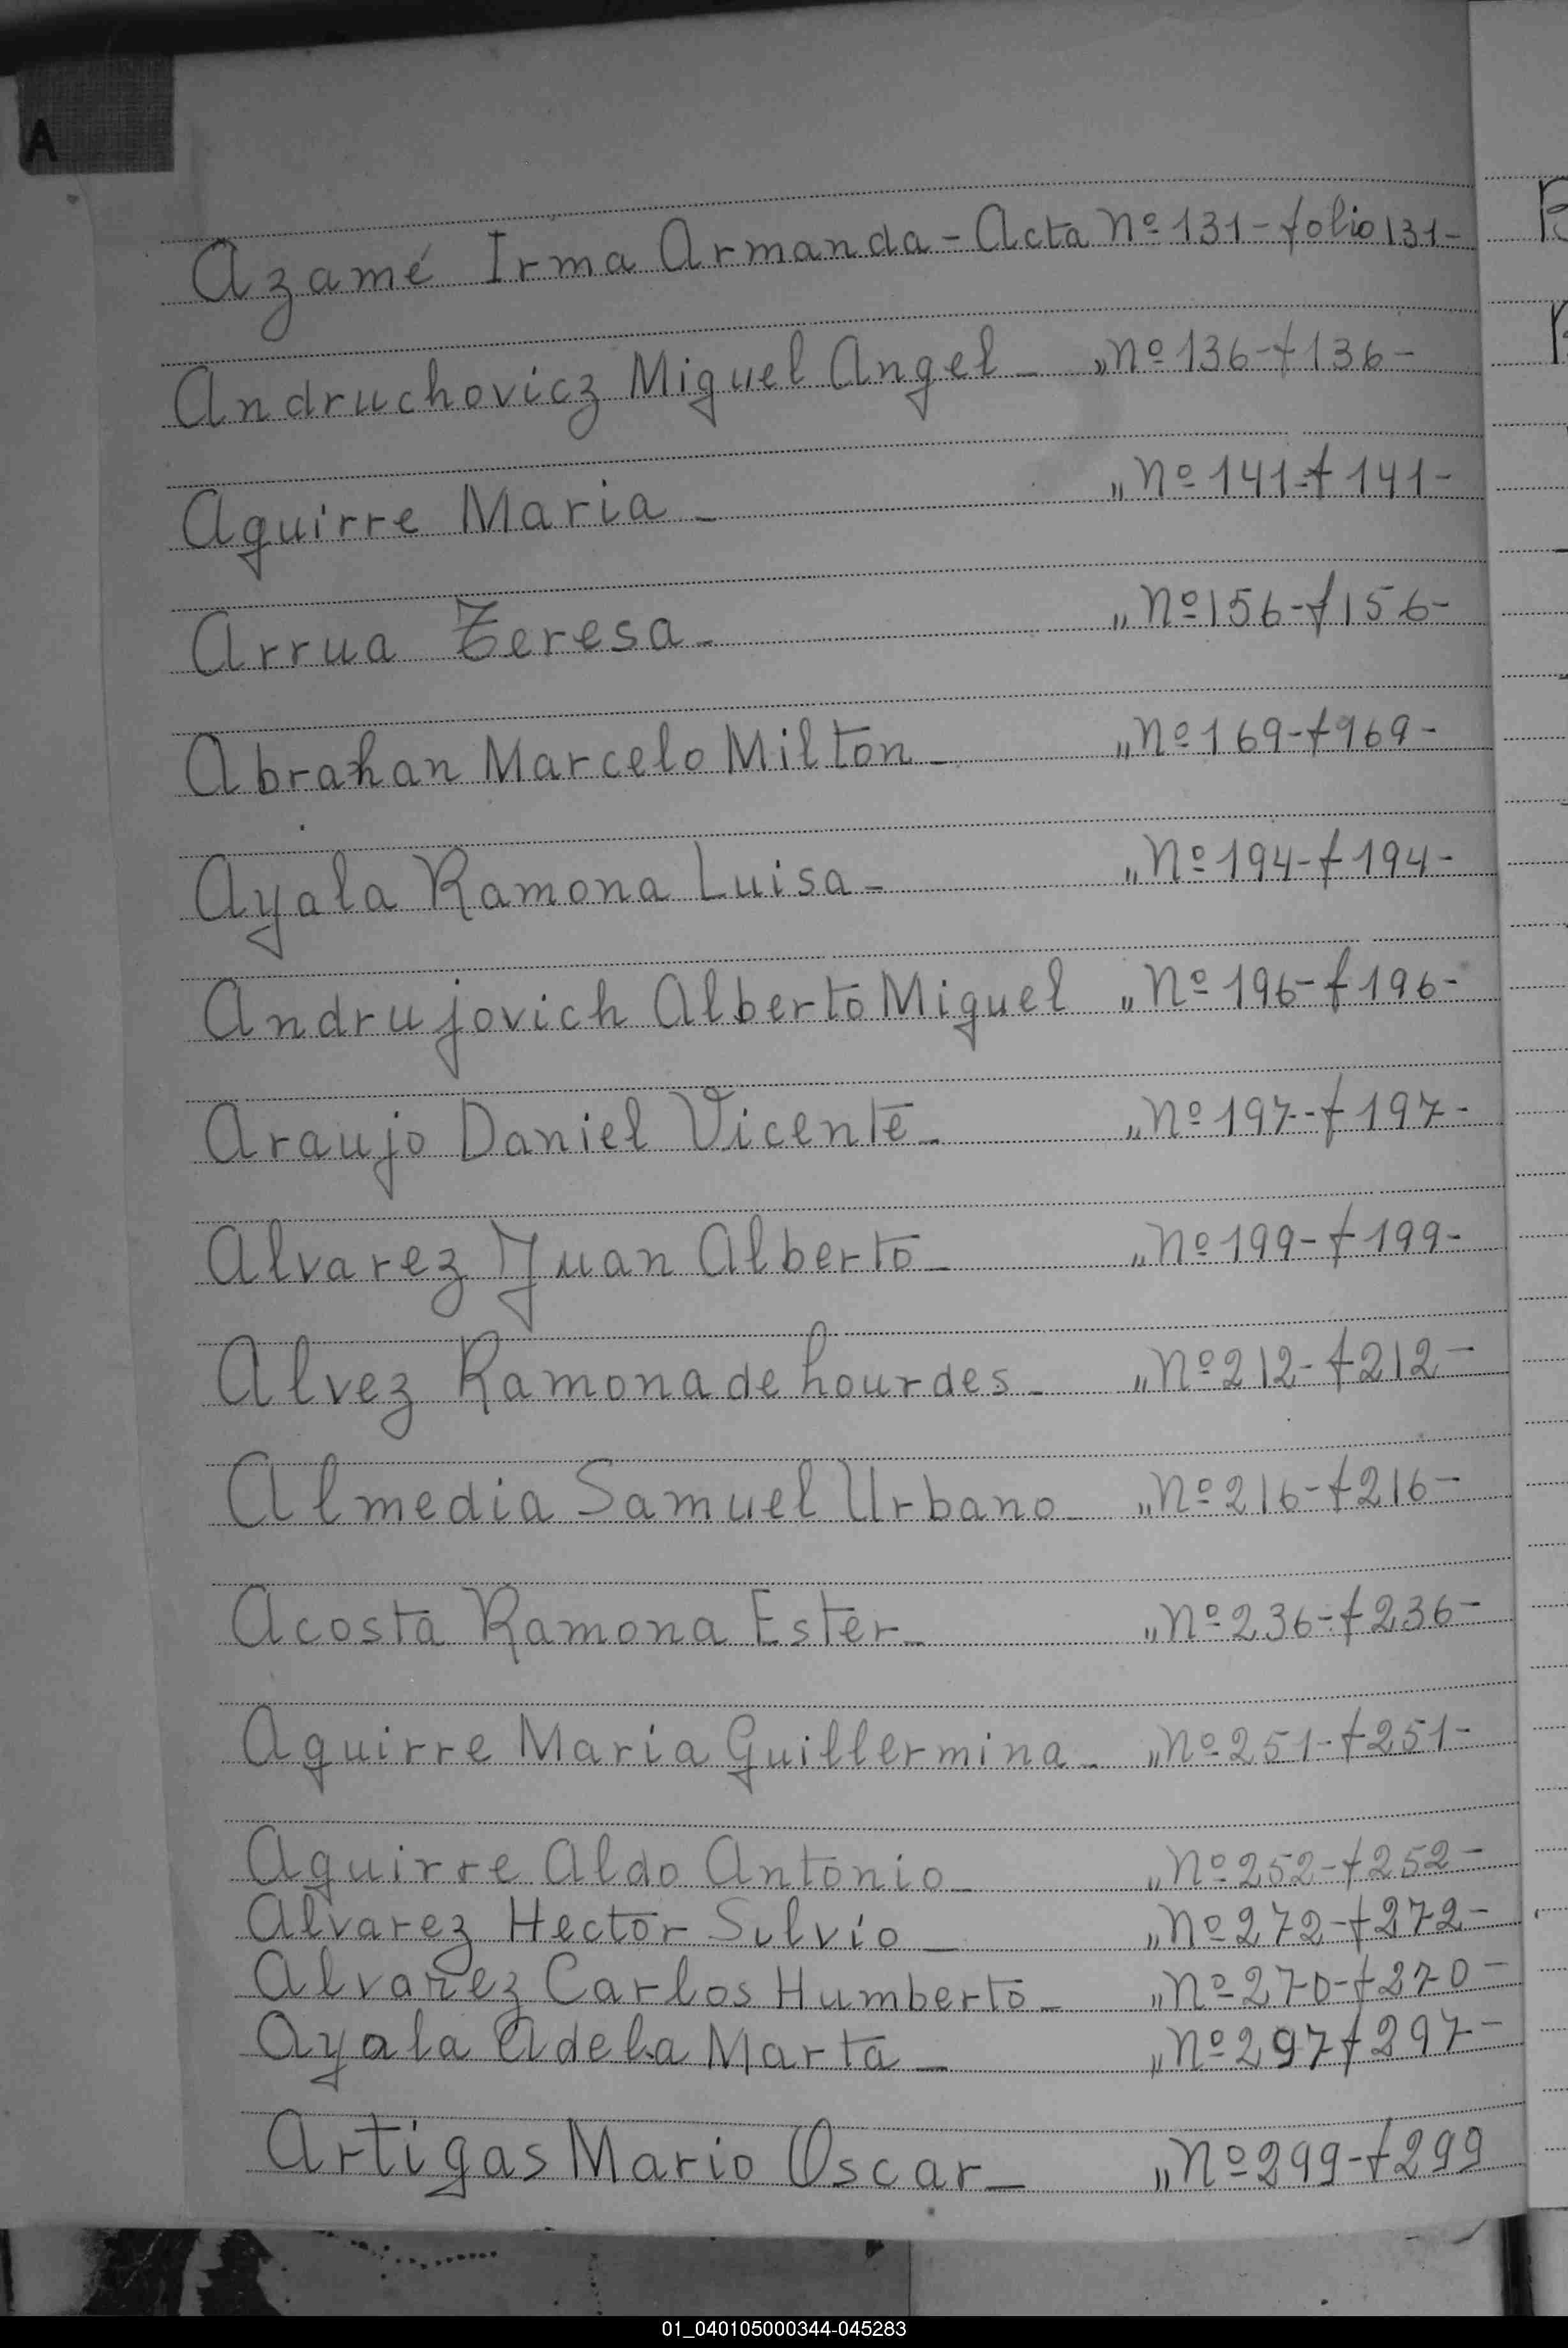 A
Azamé Irma Armanda - Acta Nº 131 - folio 131 -
Andruchovicz Miguel Angel - „ Nº 136 - f 136 -
Aguirre Maria - „ Nº 141 - f 141 -
Arrua Teresa - „ Nº 156 - f 156 -
Abrahan Marcelo Milton - „ Nº 169 - f 969 -
Ayala Ramona Luisa - „ Nº 194 - f 194 -
Andrujovich Alberto Miguel „ Nº 196 - f 196 -
Araujo Daniel Vicente - „ Nº 197 - f 197 -
Alvarez Juan Alberto - „ Nº 199 - f 199 -
Alvez Ramona de Lourdes - „ Nº 212 - f 212 -
Almedia Samuel Urbano - „ Nº 216 - f 216 -
Acosta Ramona Ester - „ Nº 236 - f 236 -
Aguirre Maria Guillermina - „ Nº 251 - f 251 -
Aguirre Aldo Antonio - „ Nº 252 - f 252 -
Alvarez Hector Silvio - „ Nº 272 - f 272 -
Alvarez Carlos Humberto - „ Nº 270 - f 270 -
Ayala Adela Marta - „ Nº 297 f 297 -
Artigas Mario Oscar - „ Nº 299 - f 299
01_040105000344-045283